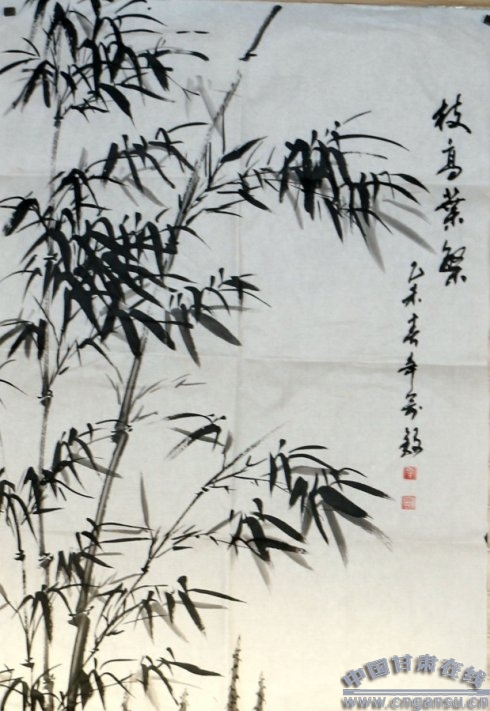 枝高葉繁
乙未春
中国甘肃在线
www.cngansu.cn